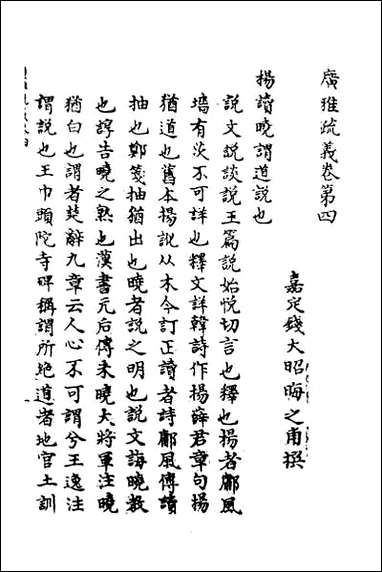 廣雅疏義卷第四
嘉定錢大昭晦之甫撰
揚讀曉謂道說也
說文說談說王篇說始悅切言也釋也揚者鄘風
墻有茨不可詳也釋文詳韓詩作揚薛君章句揚
猶道也舊本揚訛从木今訂正讀者詩鄘風傳讀
抽也鄭箋抽猶出也曉者說之明也說文誨曉教
也諄告曉之熟也漢書元后傳未曉大將軍注曉
猶白也謂者楚辭九章云人心不可謂兮王逸注
謂說也王巾頭陀寺碑稱謂所絶道者地官土訓